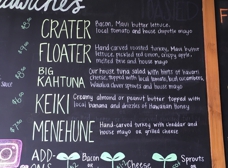 Sandwiches
CRATER
Bacon, Maui butter lettuce,
local tomato and house chipotle mayo
FLOATER
Hand-carved roasted turkey, Maui butter
lettuce, pickled red onion, crispy apple,
melted brie and house mayo
BIG
KAHTUNA
Our house tuna salad with hints of
cheese, topped with local tomato, local cucumbers,
sunflower sprouts and house mayo
KEIKI
Creamy almond or peanut butter topped with
local banana and drizzles of Hawaiian honey
MENEHUNE
Hand-carved turkey with cheddar and
house mayo or grilled cheese
ADD-
Bacon
Sprouts
or
Cheese